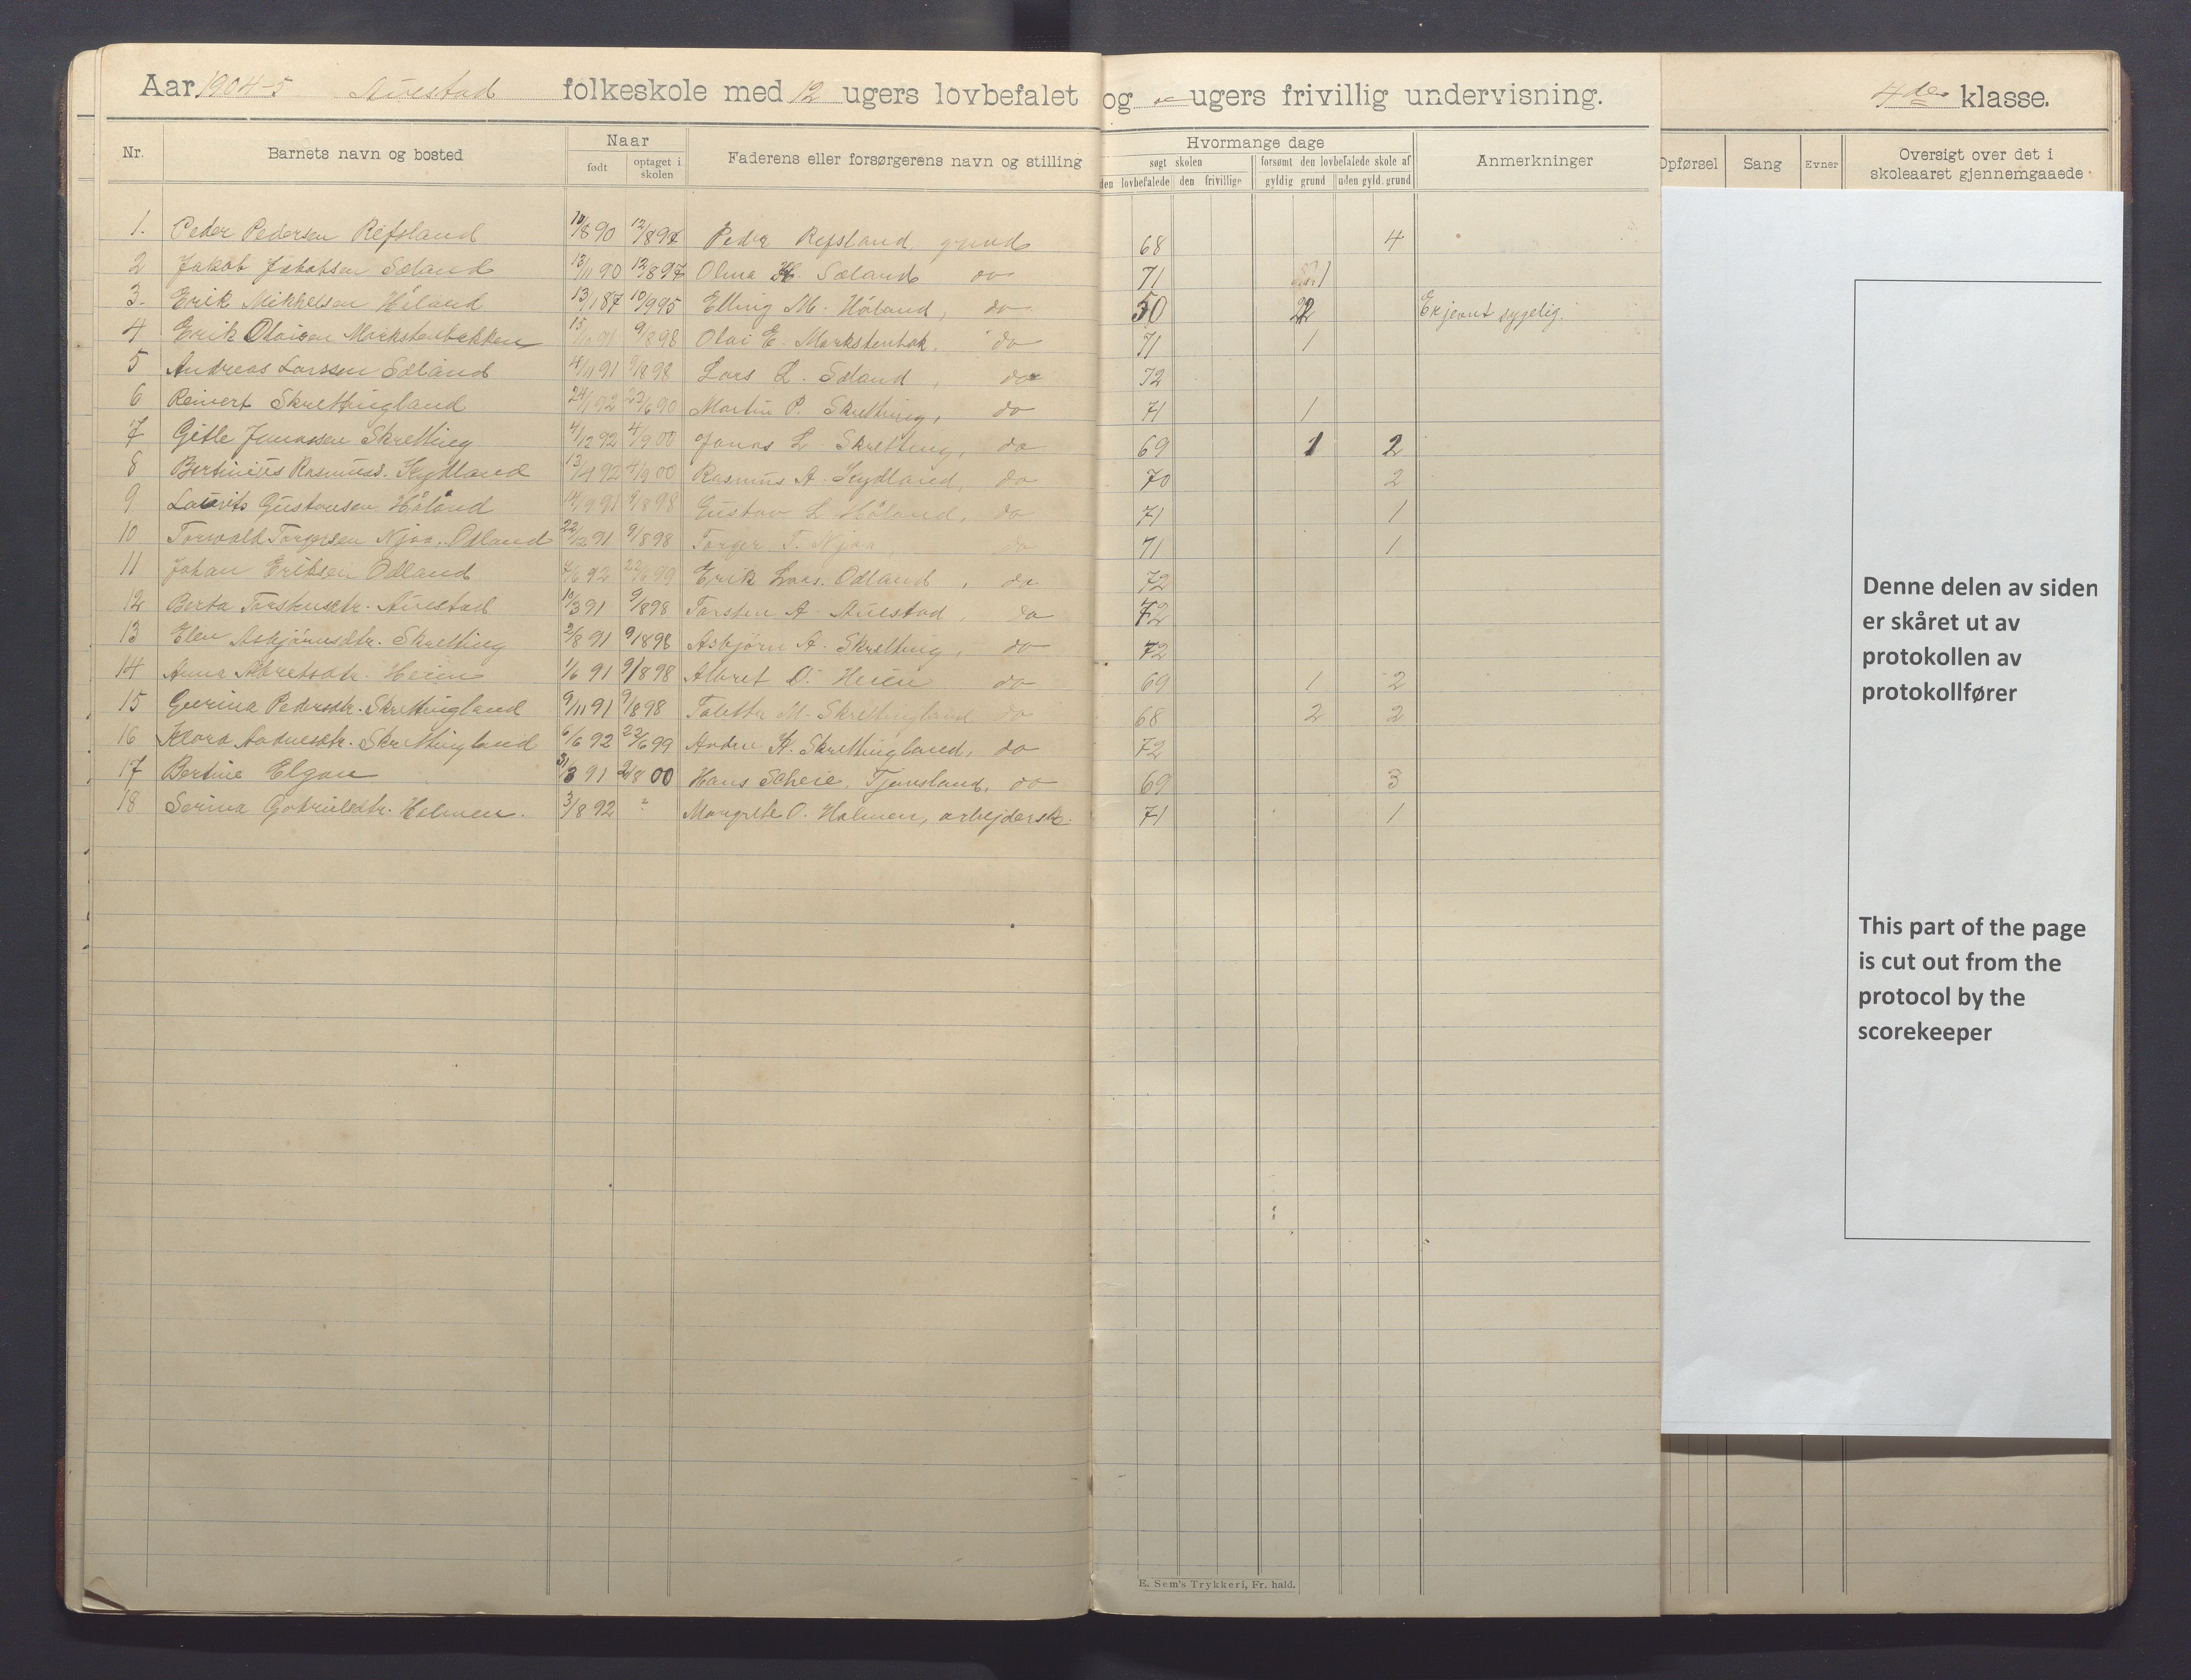 Aar 1904-5 Auestad folkeskole med 12 ugers lovbefalet og ugers frivillig undervisning. 4de klasse.
Nr. Barnets navn og bosted Naar født optaget i skolen Faderens eller forsørgerens navn og stilling Hvormange dage søgt skolen den lovbefalede den frivillige forsømt den lovbefalede skole af gyldig grund uden gyld. grund Anmerkninger Opførsel Sang Evner Oversigt over det i skoleaaret gjennemgaaede
1. Peder Pedersen Refsland 10/8 90 12/8 97 Peder Refsland, grmd 68 4
2 Jakob Jakobsen Sæland 13/11 90 12/8 97 Olina H. Sæland do 71 1
3. Erik Mikkelsen Håland 13/1 87 10/9 95 Elling M. Håland, do 50 22 Er jevnt sygelig.
4 Erik Olaisen Markstenbakken 91 9/8 98 Olai E. Markstenbak. do 71 1
5 Andreas Larssen Sæland 4/11 91 9/8 98 Lars L. Sæland, do 72
6 Reinert Skrettingland 24/1 92 23/6 90 Martin P. Skretting, do 71 1
7 Gitle Jonassen Skretting 4/12 92 4/9 00 Jonas L. Skretting, do 69 1 2
8 Bertinius Rasmuss. Kydland 13/4 92 4/9 00 Rasmus A. Kydland, do 70 2
9 Laurits Gustavsen Håland 14/9 91 9/8 98 Gustav L. Håland, do 71 1
10 Torvald Torgersen Njaa, Odland 22/12 91 9/8 98 Torger T. Njaa, do 71 1
11 Johan Eriksen Odland 7/6 92 22/6 99 Erik Lars. Odland, do 72
12 Berta Torstensdtr. Auestad 10/3 91 9/8 98 Torsten A. Auestad, do 72
13 Elen Asbjørnsdtr. Skretting 2/8 91 9/8 98 Asbjørn A. Skretting, do 72
14 Anna Albretsdtr. Heien 1/6 91 9/8 98 Albret D. Heien do 69 1 2
15 Gurina Pedersdtr. Skrettingland 9/11 91 9/8 98 Tolette M. Skrettingland do 68 2 2
16 Klara Aadnesdtr. Skrettingland 6/6 92 22/6 99 Andru K. Skrettingland, do 72
17 Bertine Elgan 31/3 91 2/8 00 Hans Scheie, Tjensland, do 69 3
18 Serina Gabrielsdtr. Holmen. 3/8 92 " Margrete O. Holmen, arbejdersk. 71 1
Denne delen av siden
er skåret ut av
protokollen av
protokollfører
This part of the page
is cut out from the
protocol by the
scorekeeper
E. Sem's Trykkeri, Fr. hald.